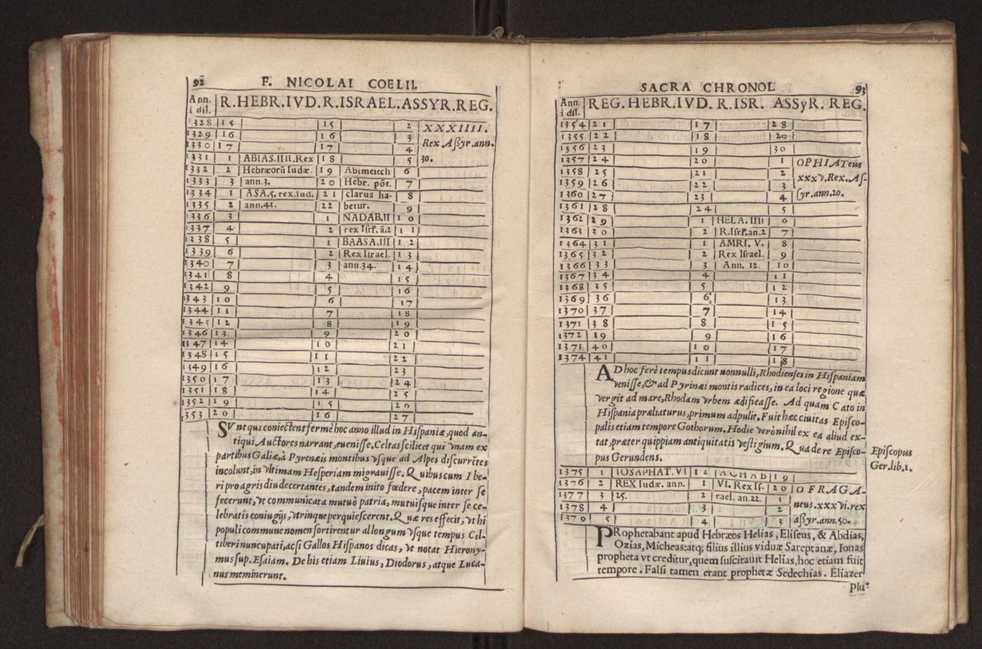 92 F. NICOLAI COELII.
Ann. i dil. R. HEBR. IVD. R. ISRAEL. ASSYR. REG.
1328 15 15 2 XXXIIII.
1329 16 16 3 Rex Assyr. ann.
1330 17 17 4
1331 1 ABIAS. IIII. Rex 18 5 30.
1332 2 Hebræorū Iudæ. 19 Abimelech 6
1333 3 ann. 3. 20 Hebr. pōt. 7
1334 1 ASA. 5. rex. Iud. 21 clarus ha- 8
1335 2 ann. 41. 22 betur. 9
1336 3 1 NADAB. II 10
1337 4 2 rex Isr. ā. 2 11
1338 5 1 BAASA. III 12
1339 6 2 Rex Israel. 13
1340 7 3 ann. 34. 14
1341 8 4 15
1342 9 5 16
1343 10 6 17
1344 11 7 18
1345 12 8 19
1346 13 9 20
1347 14 10 21
1348 15 11 22
1349 16 12 23
1350 17 13 24
1351 18 14 25
1352 19 15 26
1353 20 16 27
SVnt qui coniectent fermè hoc anno illud in Hispaniæ, quod an-
tiqui Auctores narrant, euenisse. Celtas scilicet qui vnam ex
partibus Galiæ, à Pyrenæis montibus vsque ad Alpes discurrētes
incolunt, in vltimam Hesperiam migrauisse. Quibus cum Ibe-
ri pro agris diu decertantes, tandem inito fœdere, pacem inter se
fecerunt, vt communicata mutuò patria, mutuisque inter se ce-
lebratis coniugijs, vtrinque perquiescerent. Quæ res effecit, vt hi
populi commune nomen sortirentur ad longum vsque tempus Cel-
tiberi nuncupati, acsi Gallos Hispanos dicas, vt notat Hierony-
mus sup. Esaiam. De his etiam Liuius, Diodorus, atque Luca-
nus meminerunt.
SACRA CHRONOL. 93
Ann. i dil. REG. HEBR. IVD. R. ISR. ASSyR. REG.
1354 21 17 28
1355 22 18 20
1356 23 19 30
1357 24 20 1 OPHRATeus
1358 25 21 2 xxxv. Rex. As-
1359 26 22 3 syr. ann. 20.
1360 27 23 4
1361 28 24 5
1362 29 1 HELA. IIII 6
1363 20 2 R. Isr. an. 2 7
1364 31 1 AMRI. V. 8
1365 32 2 Rex Israel. 9
1366 33 3 Ann. 12. 10
1367 34 4 11
1368 35 5 12
1369 36 6 13
1370 37 7 14
1371 38 8 15
1372 39 9 16
1373 40 10 17
1374 41 11 18
AD hoc ferè tempus dicunt nonnulli, Rhodienses in Hispaniam
venisse, & ad Pyrinæi montis radices, in ea loci regione quæ
vergit ad mare, Rhodam vrbem ædificasse. Ad quam Cato in
Hispania præliaturus, primum adpulit. Fuit hæc ciuitas Episco-
palis etiam tempore Gothorum. Hodie verò nihil ex ea aliud ex-
tat, præter quippiam antiquitatis vestigium. Qua de re Episco-
pus Gerundens.
Episcopus
Ger. lib. 1.
1375 1 IOSAPHAT. VI 12 ACHAB 19
1376 2 REX Iudæ. ann. 1 VI. Rex Is- 20 OFRAGA-
1377 3 25. 2 rael. an. 22. 1 neus. xxxvi. rex
1378 4 3 2 assyr. ann. 50.
1379 5 4 3
PRophetabant apud Hebræos Helias, Eliseus, & Abdias,
Ozias, Micheas: atq; filius illius viduæ Sareptanæ, Ionas
propheta vt creditur, quem suscitauit Helias, hoc etiam fuit
tempore. Falsi tamen erant prophetæ Sedechias. Eliazer
Phi-